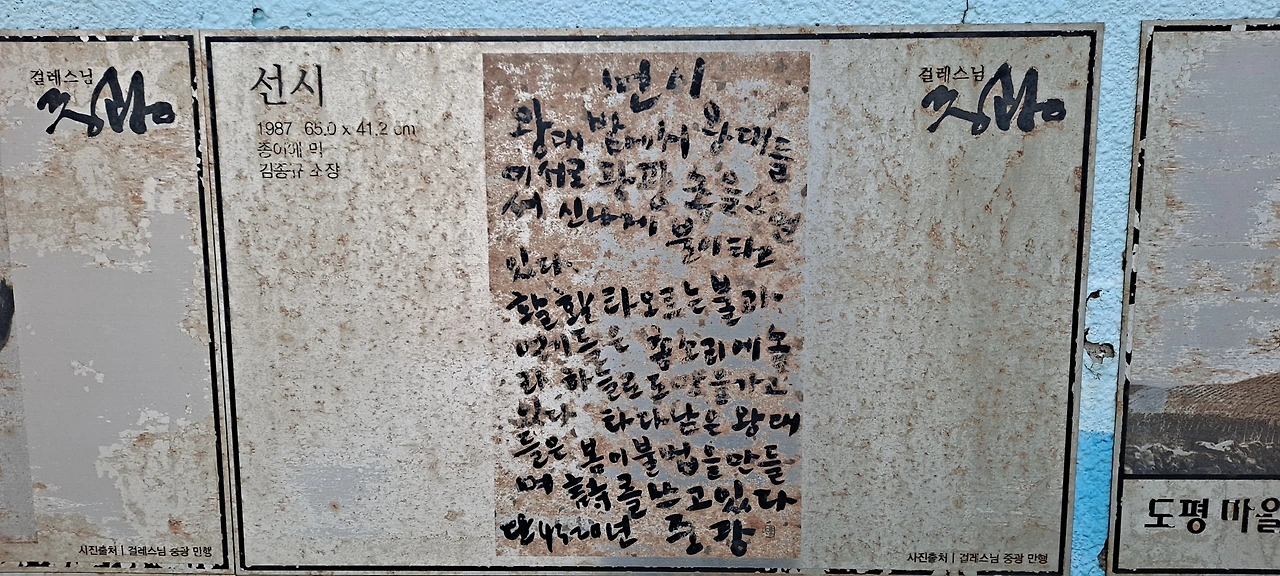 걸레스님
중광
사진출처 | 걸레스님 중광 만행
선시
1987 65.0 x 41.2 cm
종이에 먹
김종규 소장
걸레스님
중광
선시
왕대 밭에서 왕대들
이 서로 쾅쾅
서 신나게 불이 타고
있다
활활 타오르는 불
들은 소리에 놀
라 하늘로 도망을 가고
있다 타다 남은 왕대
들은 몸이 불법을 만들
며 를 쓰고 있다
중광
사진출처 | 걸레스님 중광 만행
도평 마을